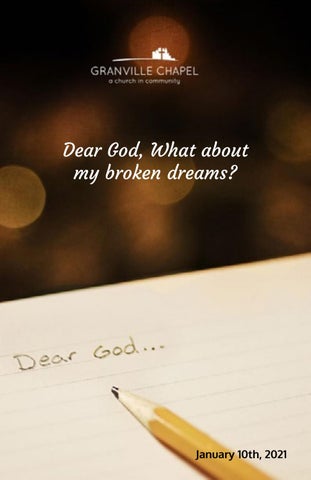 GRANVILLE CHAPEL
a church in community
Dear God, What about
my broken dreams?
Dear God...
January 10th, 2021